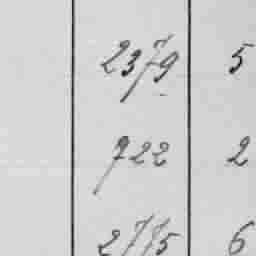 2379 5
722 2
2775 6